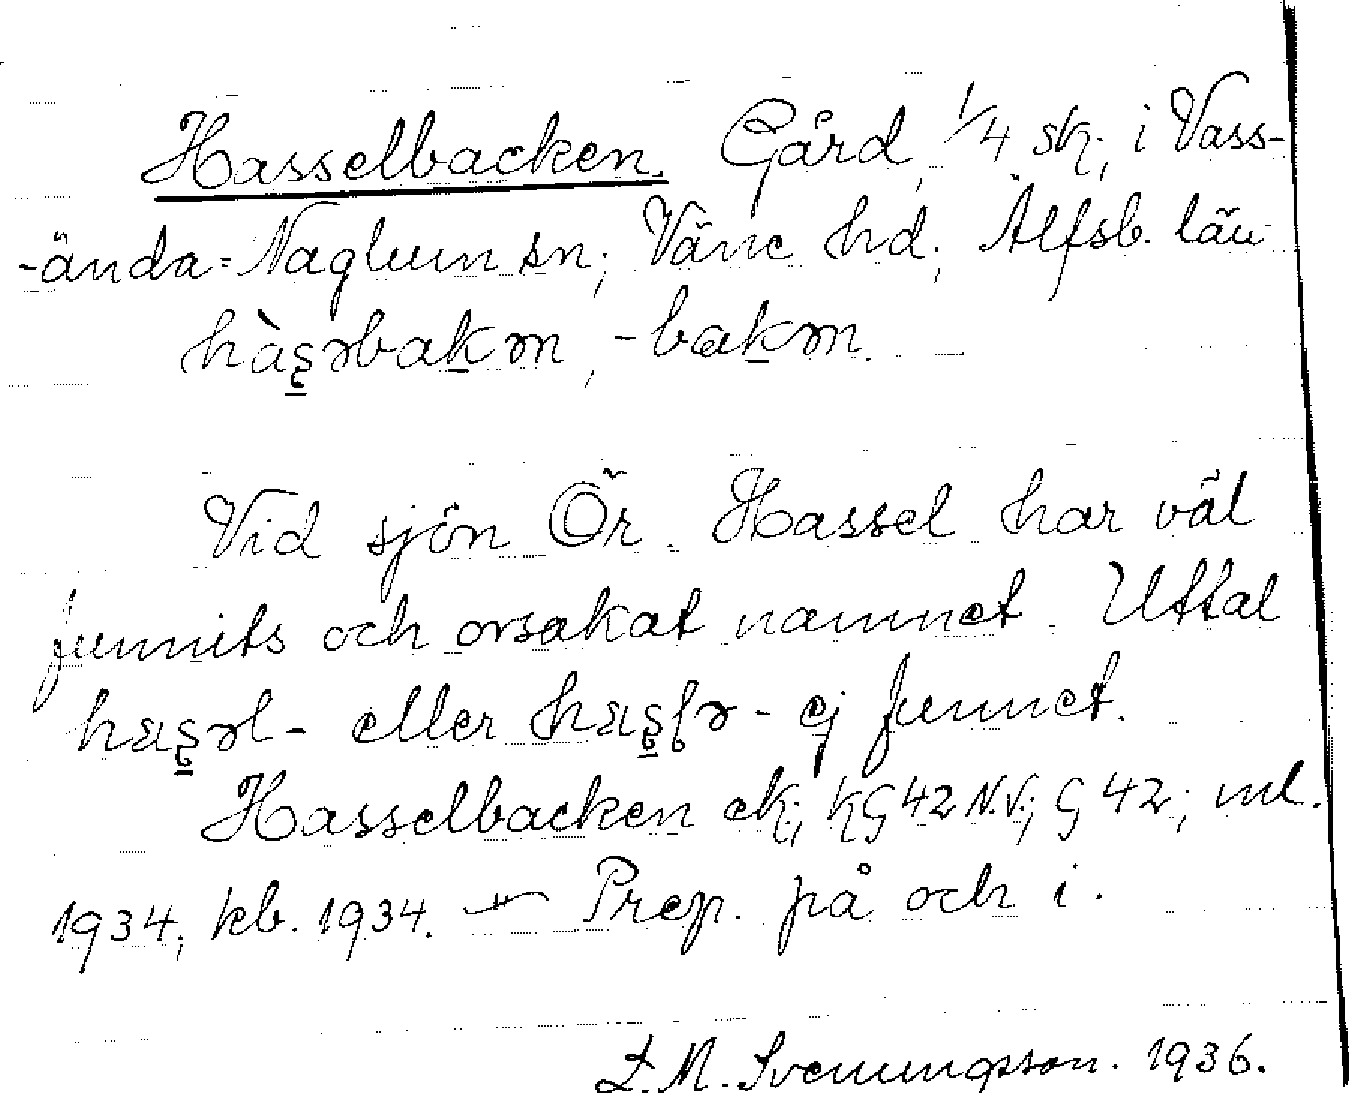 Hasselbacken. Gård, 1/4 sk; i Vass-
-ända-Naglum sn; Väne hd; Älfsb. län
hàs̱ərbaḵən, -bakən.
Vid sjön Ör. Hassel har väl
funnits och orsakat namnet. Uttal
hasəl- eller hasļə- ej funnet.
Hasselbacken ek; KG 42 N.V; G 42; ml.
1934; kb. 1934. — Prep. på och i.
L.M. Svenungsson. 1936.